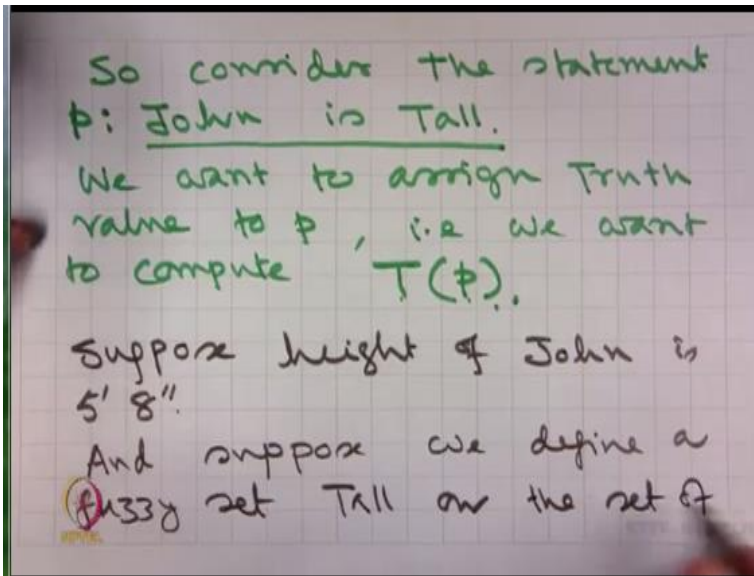 So consider the statement
p: John is Tall.
We want to assign Truth
value to p, i.e we want
to compute T(p).
Suppose height of John is
5' 8".
And suppose we define a
fuzzy set Tall on the set of
NPTEL